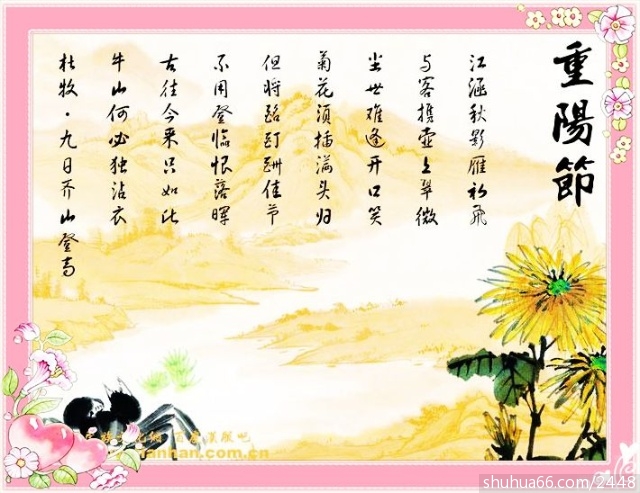 重陽節
江涵秋影雁初飞
与客携壶上翠微
尘世难逢开口笑
菊花须插满头归
但将酩酊酬佳节
不用登临恨落晖
古往今来只如此
牛山何必独沾衣
杜牧·九日齐山登高
shuhua66.com/2448